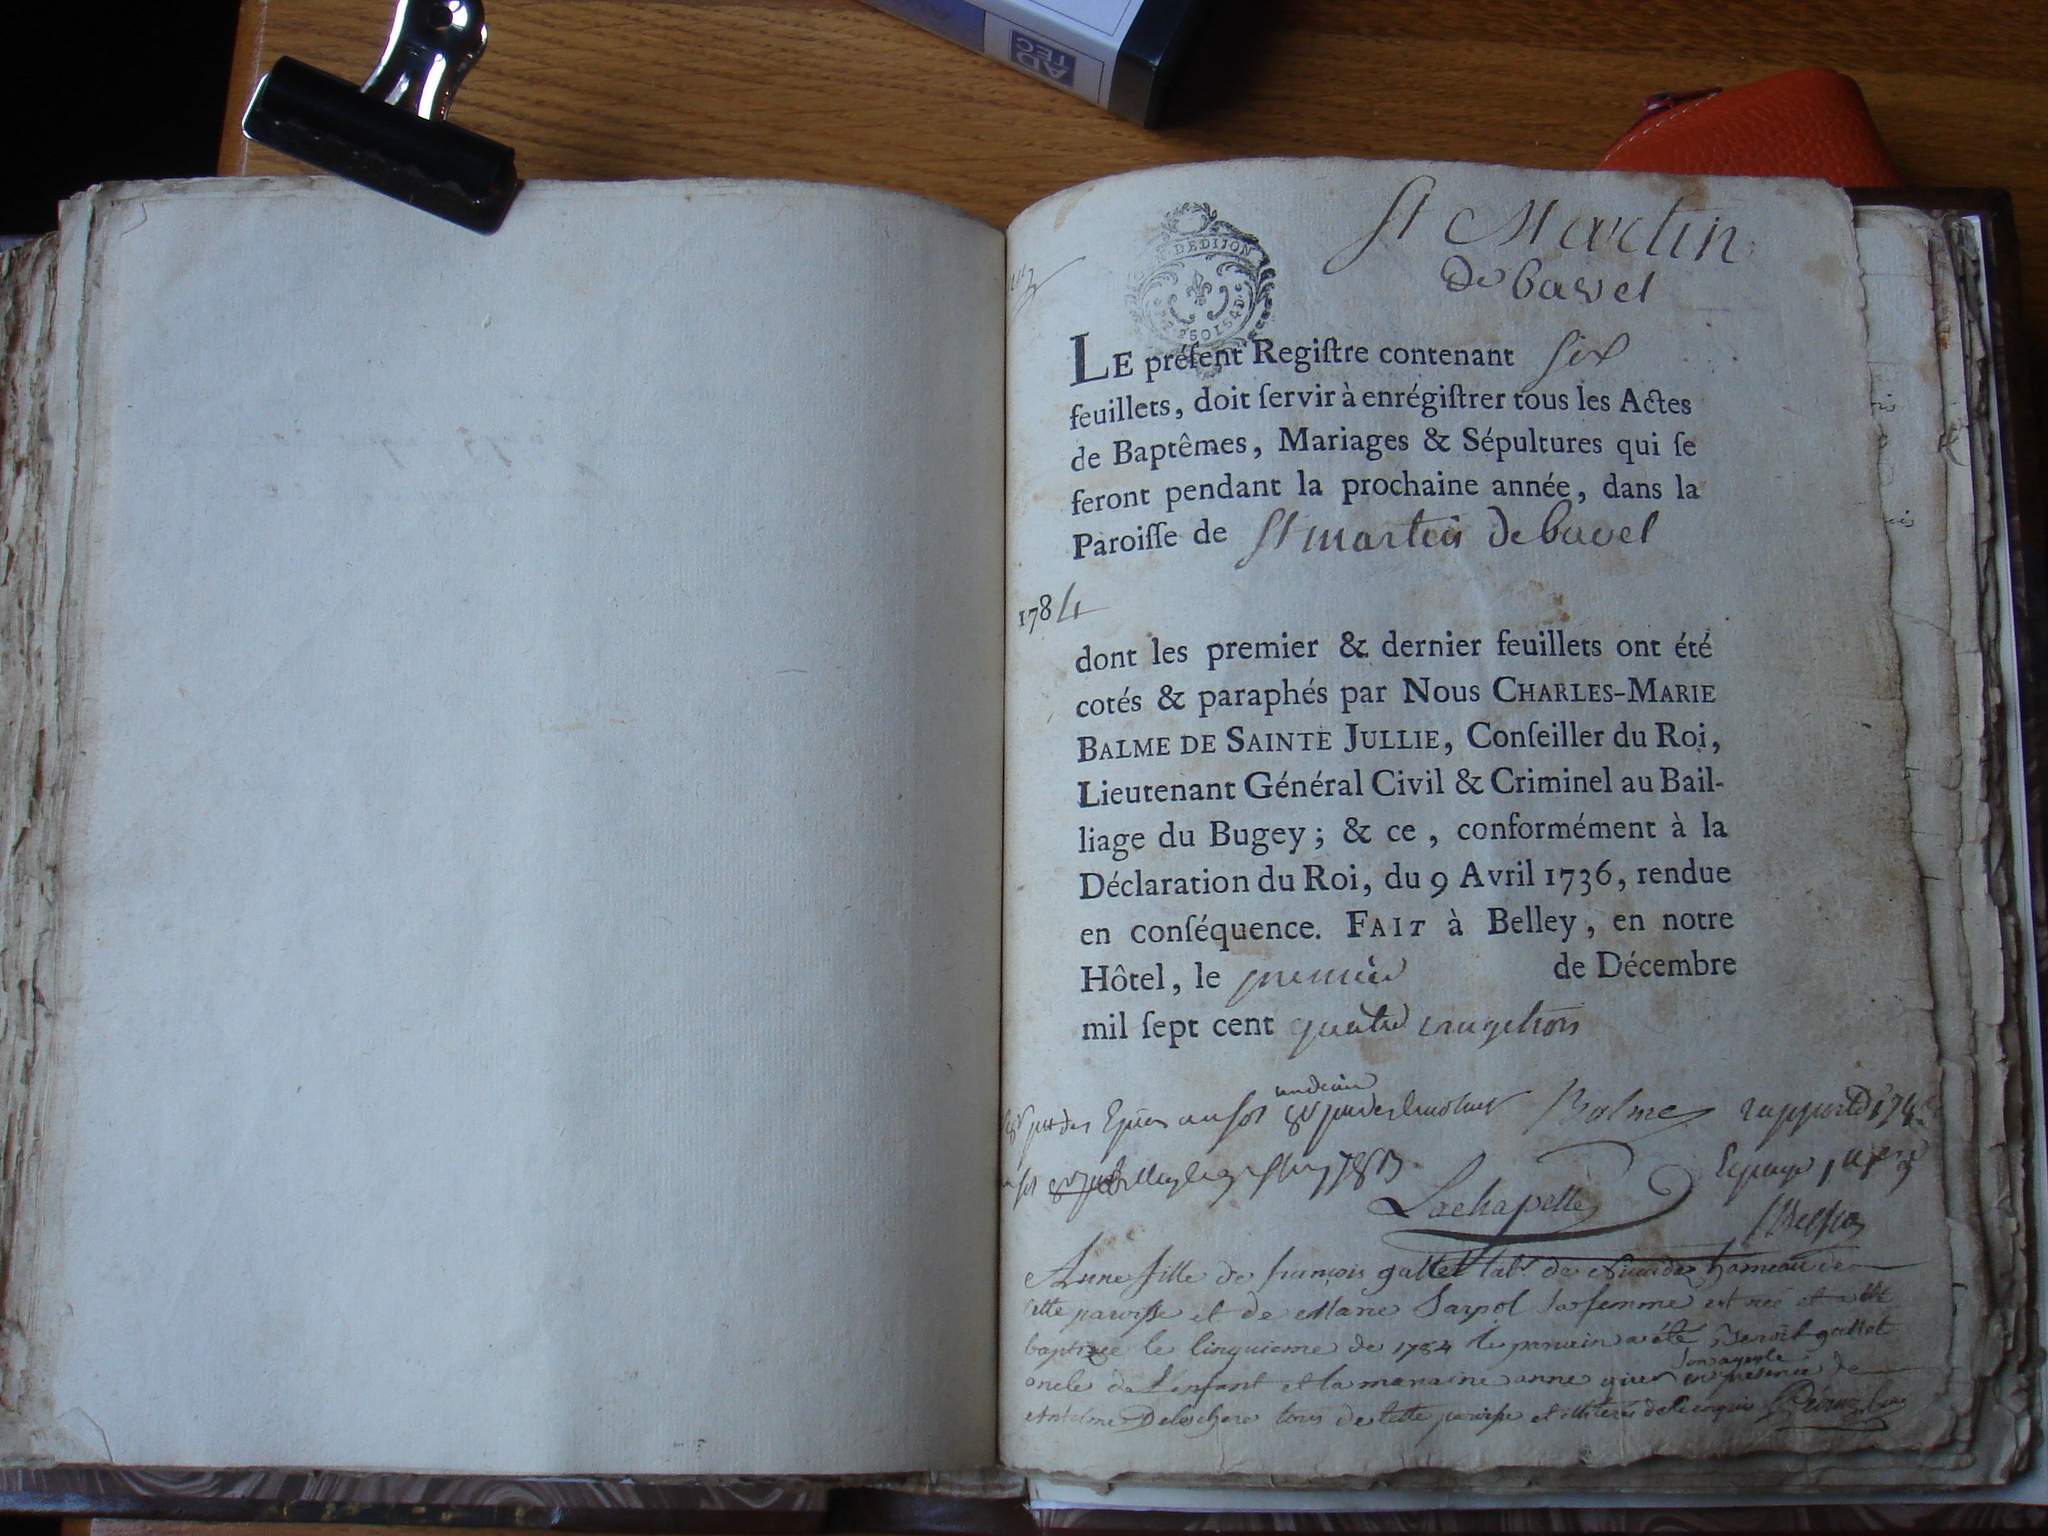 AD
TEC
St Martin
de bavel
DE DIJON
LE préſent Regiſtre contenant Six
feuillets, doit ſervir à enrégiſtrer tous les Actes
de Baptêmes, Mariages & Sépultures qui ſe
feront pendant la prochaine année, dans la
Paroiſſe de St martin de bavel
1784
dont les premier & dernier feuillets ont été
cotés & paraphés par Nous CHARLES-MARIE
BALME DE SAINTE JULLIE, Conſeiller du Roi,
Lieutenant Général Civil & Criminel au Bail-
liage du Bugey ; & ce , conformément à la
Déclaration du Roi, du 9 Avril 1736, rendue
en conſéquence. FAIT à Belley, en notre
Hôtel, le premier de Décembre
mil ſept cent quatre vingt trois
Balme
Lachapelle
Anne fille de françois gallet labr de hameau de
cette paroisse et de Marie Sa femme est née et a été
baptizée le Cinquieme de 1784 le parrain a été Benoit gallet
oncle de L'enfant et la maraine anne son ayeule en présence de
Antelme tous de cette paroisse et illiterés de ce enquis